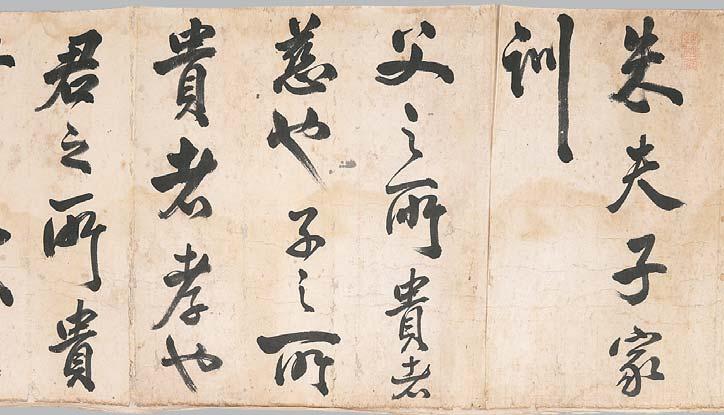 朱夫子家
訓
父之所貴者
慈也子之所
貴者孝也
君之所貴